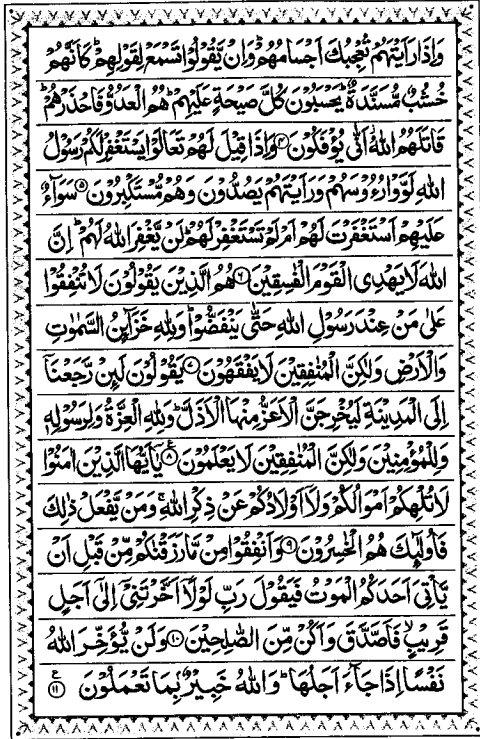 وَاِذَا رَاَيْتَهُمْ تُعْجِبُكَ اَجْسَامُهُمْ ؕ وَاِنْ يَّقُوْلُوْا تَسْمَعْ لِقَوْلِهِمْ ؕ كَاَنَّهُمْ
خُشُبٌ مُّسَنَّدَةٌ ؕ يَحْسَبُوْنَ كُلَّ صَيْحَةٍ عَلَيْهِمْ ؕ هُمُ الْعَدُوُّ فَاحْذَرْهُمْ ؕ
قَاتَلَهُمُ اللّٰهُ ؗ اَنّٰى يُؤْفَكُوْنَ ۴ وَاِذَا قِيْلَ لَهُمْ تَعَالَوْا يَسْتَغْفِرْ لَكُمْ رَسُوْلُ
اللّٰهِ لَوَّوْا رُءُوْسَهُمْ وَرَاَيْتَهُمْ يَصُدُّوْنَ وَهُمْ مُّسْتَكْبِرُوْنَ ۵ سَوَآءٌ
عَلَيْهِمْ اَسْتَغْفَرْتَ لَهُمْ اَمْ لَمْ تَسْتَغْفِرْ لَهُمْ ؕ لَنْ يَّغْفِرَ اللّٰهُ لَهُمْ ؕ اِنَّ
اللّٰهَ لَا يَهْدِى الْقَوْمَ الْفٰسِقِيْنَ ۶ هُمُ الَّذِيْنَ يَقُوْلُوْنَ لَا تُنْفِقُوْا
عَلٰى مَنْ عِنْدَ رَسُوْلِ اللّٰهِ حَتّٰى يَنْفَضُّوْا ؕ وَلِلّٰهِ خَزَآىِٕنُ السَّمٰوٰتِ
وَالْاَرْضِ وَلٰكِنَّ الْمُنٰفِقِيْنَ لَا يَفْقَهُوْنَ ۷ يَقُوْلُوْنَ لَىِٕنْ رَّجَعْنَاۤ
اِلَى الْمَدِيْنَةِ لَيُخْرِجَنَّ الْاَعَزُّ مِنْهَا الْاَذَلَّ ؕ وَلِلّٰهِ الْعِزَّةُ وَلِرَسُوْلِهٖ
وَلِلْمُؤْمِنِيْنَ وَلٰكِنَّ الْمُنٰفِقِيْنَ لَا يَعْلَمُوْنَ ۸ ع يٰۤاَيُّهَا الَّذِيْنَ اٰمَنُوْا
لَا تُلْهِكُمْ اَمْوَالُكُمْ وَلَاۤ اَوْلَادُكُمْ عَنْ ذِكْرِ اللّٰهِ ۚ وَمَنْ يَّفْعَلْ ذٰلِكَ
فَاُولٰٓىِٕكَ هُمُ الْخٰسِرُوْنَ ۹ وَاَنْفِقُوْا مِنْ مَّا رَزَقْنٰكُمْ مِّنْ قَبْلِ اَنْ
يَّاْتِىَ اَحَدَكُمُ الْمَوْتُ فَيَقُوْلَ رَبِّ لَوْلَاۤ اَخَّرْتَنِيْۤ اِلٰۤى اَجَلٍ
قَرِيْبٍ ۙ فَاَصَّدَّقَ وَاَكُنْ مِّنَ الصّٰلِحِيْنَ ۱۰ وَلَنْ يُّؤَخِّرَ اللّٰهُ
نَفْسًا اِذَا جَآءَ اَجَلُهَا ؕ وَاللّٰهُ خَبِيْرٌۢ بِمَا تَعْمَلُوْنَ ۱۱ ع